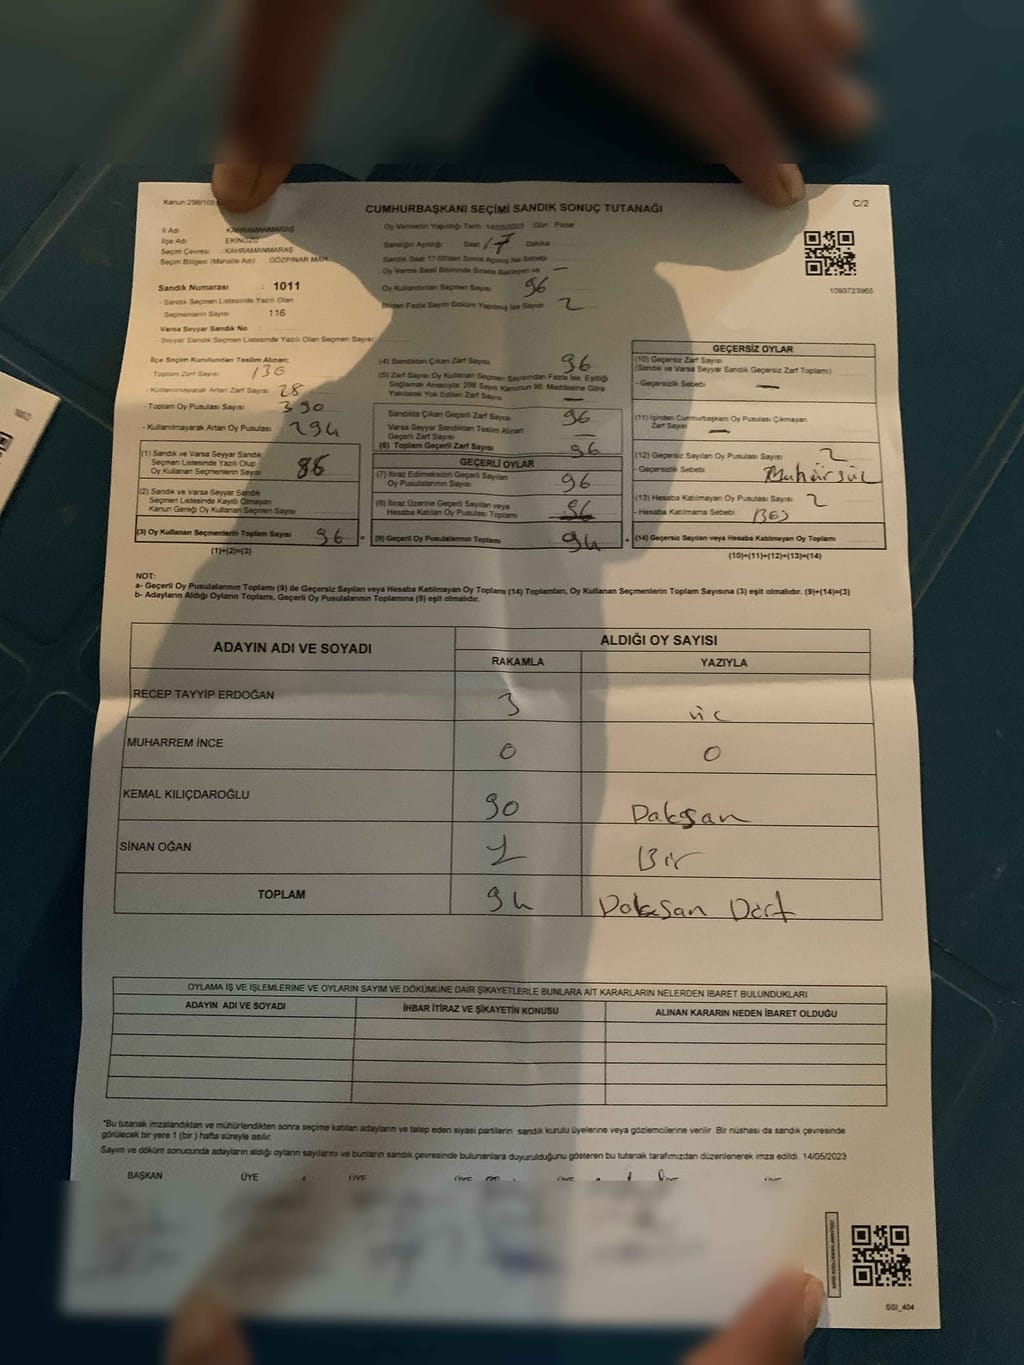 Kanun:298/105
C/2
CUMHURBAŞKANI SEÇİMİ SANDIK SONUÇ TUTANAĞI
İl Adı : KAHRAMANMARAŞ
İlçe Adı : EKİNÖZÜ
Seçim Çevresi : KAHRAMANMARAŞ
Seçim Bölgesi (Mahalle Adı) GÖZPINAR MAH.
Sandık Numarası : 1011
- Sandık Seçmen Listesinde Yazılı Olan
Seçmenlerin Sayısı 116
Varsa Seyyar Sandık No :
- Seyyar Sandık Seçmen Listesinde Yazılı Olan Seçmen Sayısı
Oy Vermenin Yapıldığı Tarih 14/05/2023 Gün: Pazar
Sandığın Açıldığı Saat 17 Dakika
Sandık Saat 17.00'den Sonra Açılmış İse Sebebi
Oy Verme Saati Bitiminde Sırada Bekleyen ve
Oy Kullandırılan Seçmen Sayısı 96
Birden Fazla Sayım Döküm Yapılmış İse Sayısı 2
1093723965
İlçe Seçim Kurulundan Teslim Alınan;
- Toplam Zarf Sayısı 130
- Kullanılmayarak Artan Zarf Sayısı 28
- Toplam Oy Pusulası Sayısı 390
- Kullanılmayarak Artan Oy Pusulası 294
(1) Sandık ve Varsa Seyyar Sandık
Seçmen Listesinde Yazılı Olup
Oy Kullanan Seçmenlerin Sayısı 86
(2) Sandık ve Varsa Seyyar Sandık
Seçmen Listesinde Kayıtlı Olmayan
Kanun Gereği Oy Kullanan Seçmen Sayısı
(3) Oy Kullanan Seçmenlerin Toplam Sayısı 96
(1)+(2)=(3)
(4) Sandıktan Çıkan Zarf Sayısı 96
(5) Zarf Sayısı Oy Kullanan Seçmen Sayısından Fazla İse, Eşitliği
Sağlamak Amacıyla; 298 Sayılı Kanunun 98. Maddesine Göre
Yakılarak Yok Edilen Zarf Sayısı —
Sandıkta Çıkan Geçerli Zarf Sayısı 96
Varsa Seyyar Sandıktan Teslim Alınan
Geçerli Zarf Sayısı —
(6) Toplam Geçerli Zarf Sayısı 96
GEÇERLİ OYLAR
(7) İtiraz Edilmeksizin Geçerli Sayılan
Oy Pusulalarının Sayısı 96
(8) İtiraz Üzerine Geçerli Sayılan veya
Hesaba Katılan Oy Pusulası Toplamı 96
(9) Geçerli Oy Pusulalarının Toplamı 94
GEÇERSİZ OYLAR
(10) Geçersiz Zarf Sayısı
(Sandık ve Varsa Seyyar Sandık Geçersiz Zarf Toplamı)
- Geçersizlik Sebebi —
(11) İçinden Cumhurbaşkanı Oy Pusulası Çıkmayan
Zarf Sayısı —
(12) Geçersiz Sayılan Oy Pusulası Sayısı 2
- Geçersizlik Sebebi
(13) Hesaba Katılmayan Oy Pusulası Sayısı 2
- Hesaba Katılmama Sebebi
(14) Geçersiz Sayılan veya Hesaba Katılmayan Oy Toplamı
(10)+(11)+(12)+(13)=(14)
NOT:
a- Geçerli Oy Pusulalarının Toplamı (9) ile Geçersiz Sayılan veya Hesaba Katılmayan Oy Toplamı (14) Toplamları, Oy Kullanan Seçmenlerin Toplam Sayısına (3) eşit olmalıdır. (9)+(14)=(3)
b- Adayların Aldığı Oyların Toplamı, Geçerli Oy Pusulalarının Toplamına (9) eşit olmalıdır.
ADAYIN ADI VE SOYADI
ALDIĞI OY SAYISI
RAKAMLA YAZIYLA
RECEP TAYYİP ERDOĞAN 3 üç
MUHARREM İNCE 0 0
KEMAL KILIÇDAROĞLU 90 Daksan
SİNAN OĞAN 1 Bir
TOPLAM 94 Daksan Dört
OYLAMA İŞ VE İŞLEMLERİNE VE OYLARIN SAYIM VE DÖKÜMÜNE DAİR ŞİKAYETLERLE BUNLARA AİT KARARLARIN NELERDEN İBARET BULUNDUKLARI
ADAYIN ADI VE SOYADI İHBAR İTİRAZ VE ŞİKAYETİN KONUSU ALINAN KARARIN NEDEN İBARET OLDUĞU
*Bu tutanak imzalandıktan ve mühürlendikten sonra seçime katılan adayların ve talep eden siyasi partilerin sandık kurulu üyelerine veya gözlemcilerine verilir. Bir nüshası da sandık çevresinde
görülecek bir yere 1 (bir) hafta süreyle asılır.
Sayım ve döküm sonucunda adayların aldığı oyların sayılarını ve bunların sandık çevresinde bulunanlara duyurulduğunu gösteren bu tutanak tarafımızdan düzenlenerek imza edildi. 14/05/2023
BAŞKAN ÜYE ÜYE ÜYE ÜYE ÜYE ÜYE
SSI_404